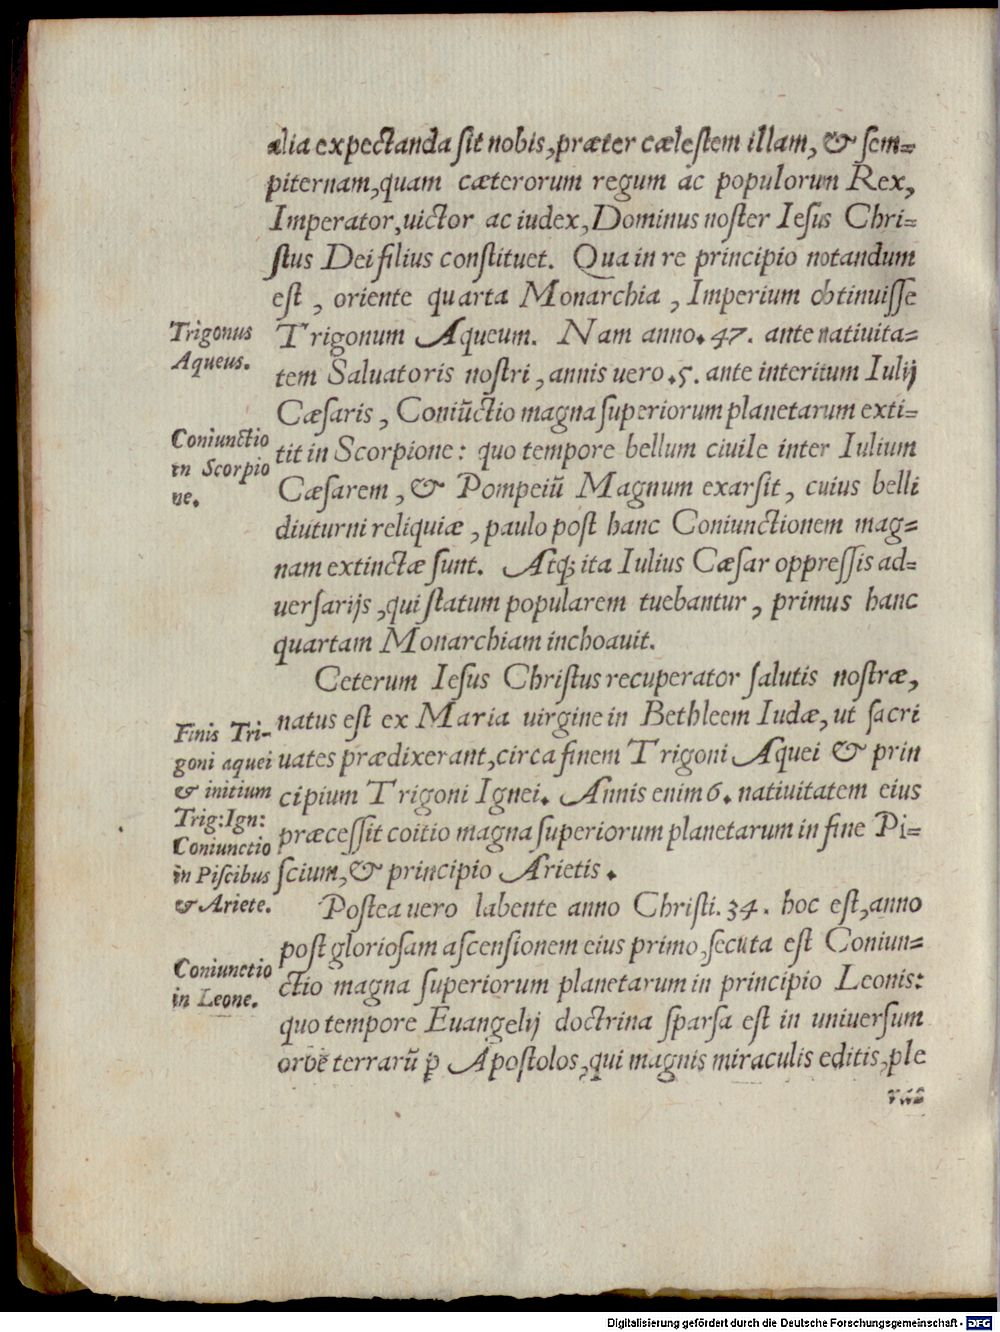 alia expectanda sit nobis, præter cælestem illam, & sem-
piternam, quam cæterorum regum ac populorum Rex,
Imperator, uictor ac iudex, Dominus noster Iesus Chri-
stus Dei filius constituet. Qua in re principio notandum
est, oriente quarta Monarchia, Imperium obtinuisse
Trigonus
Aqueus.
Trigonum Aqueum. Nam anno. 47. ante natiuita-
tem Saluatoris nostri, annis uero. 5. ante interitum Iulij
Cæsaris, Coniūctio magna superiorum planetarum exti-
Coniunctio
in Scorpio
ne.
tit in Scorpione: quo tempore bellum ciuile inter Iulium
Cæsarem, & Pompeiū Magnum exarsit, cuius belli
diuturni reliquiæ, paulo post hanc Coniunctionem mag-
nam extinctæ sunt. Atq; ita Iulius Cæsar oppressis ad-
uersarijs, qui statum popularem tuebantur, primus hanc
quartam Monarchiam inchoauit.
Ceterum Iesus Christus recuperator salutis nostræ,
Finis Tri-
goni aquei
& initium
Trig: Ign:
Coniunctio
in Piscibus
& Ariete.
natus est ex Maria uirgine in Bethleem Iudæ, ut sacri
uates prædixerant, circa finem Trigoni Aquei & prin
cipium Trigoni Ignei. Annis enim 6. natiuitatem eius
præcessit coitio magna superiorum planetarum in fine Pi-
scium, & principio Arietis.
Postea uero labente anno Christi. 34. hoc est, anno
post gloriosam ascensionem eius primo, secuta est Coniun-
Coniunctio
in Leone.
ctio magna superiorum planetarum in principio Leonis:
quo tempore Euangelij doctrina sparsa est in uniuersum
orbē terrarū ꝑ Apostolos, qui magnis miraculis editis, ple
Digitalisierung gefördert durch die Deutsche Forschungsgemeinschaft - DFG